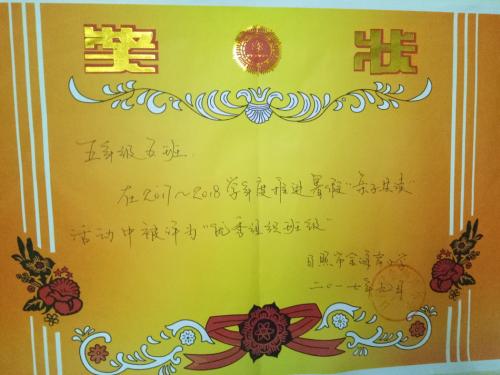 奖 状
五年级五班
在2017~2018学年度推进暑假“亲子共读”
活动中被评为“优秀组织班级”
日照市金海岸小学
二〇一七年九月